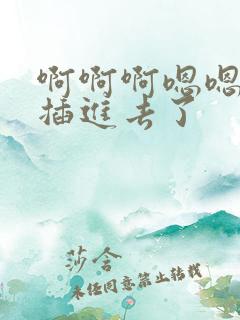 啊啊啊嗯嗯
插進去了
莎含
未经同意禁止转载